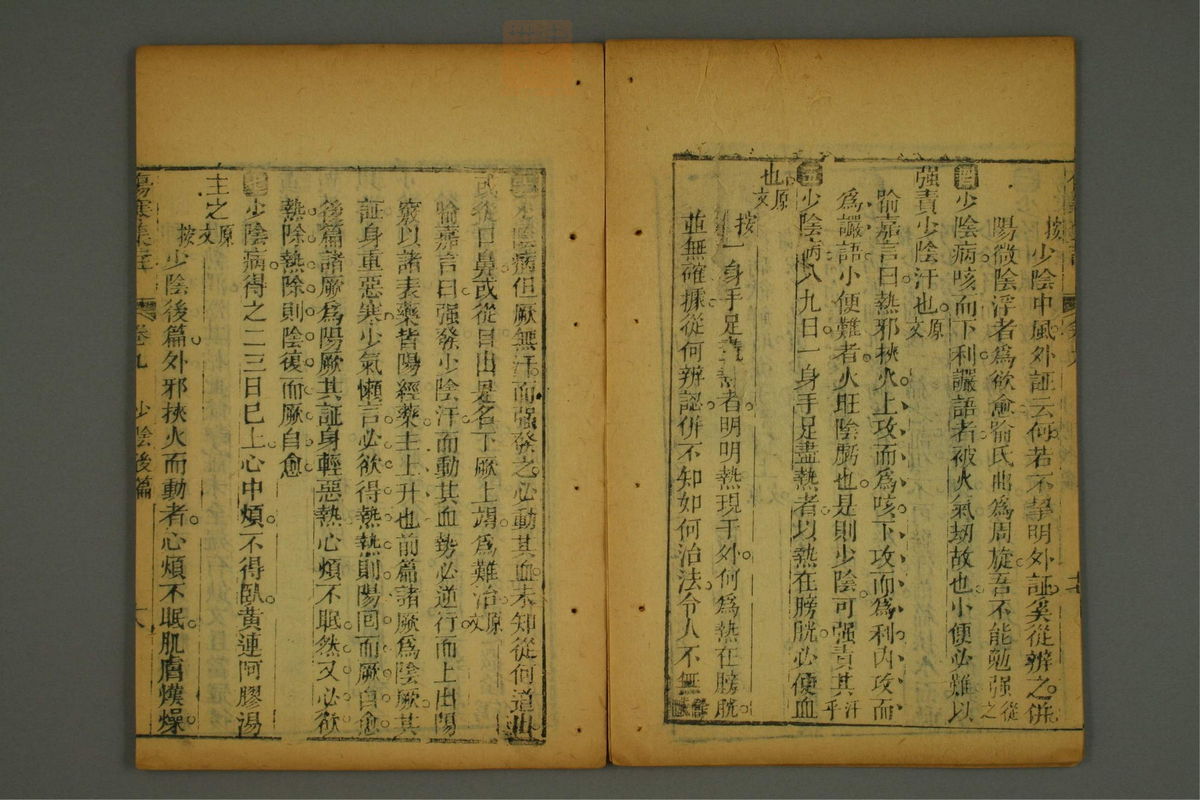 按少陰中風外証云何若不挈明外証奚從辨之併
陽微陰浮者為欲愈喻氏曲為周旋吾不能勉强從之
少陰病咳而下利讝語者被火氣刼故也小便必難以
强責少陰汗也原文
喻嘉言曰熱邪挾火上攻而為咳下攻而為利內攻而
為讝語小便難者火旺陰虧也是則少陰可强責其汗乎
少陰病八九日一身手足盡熱者以熱在膀胱必便血
也原文
按一身手足盡熱者明明熱現于外何為熱在膀胱
並無確據從何辨認併不知如何治法令人不無
少陰病但厥無汗而强發之必動其血未知從何道出
或從口鼻或從目出是名下厥上竭為難治原文
喻嘉言曰强發少陰汗而動其血勢必逆行而上出陽
竅以諸表藥皆陽經藥主上升也前篇諸厥為陰厥其
証身重惡寒少氣懶言必欲得熱熱則陽囘而厥自愈
後篇諸厥為陽厥其証身輕惡熱心煩不眠然又必欲
熱除熱除則陰復而厥自愈
少陰病得之二三日已上心中煩不得臥黃連阿膠湯
主之原文
按少陰後篇外邪挾火而動者心煩不眠肌膚熯燥
傷寒集註 卷九 少陰後篇